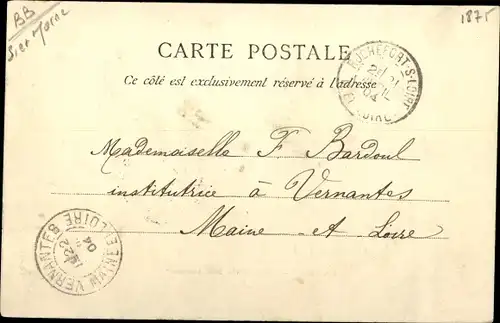 BB
1875
CARTE POSTALE
Ce côté est exclusivement réservé à l'adresse
ROCHEFORT-S-LOIRE
04
Mademoiselle F. Bardoul
institutrice à Vernantes
Maine - et Loire
VERNANTES
MAINE-ET-LOIRE
22
04